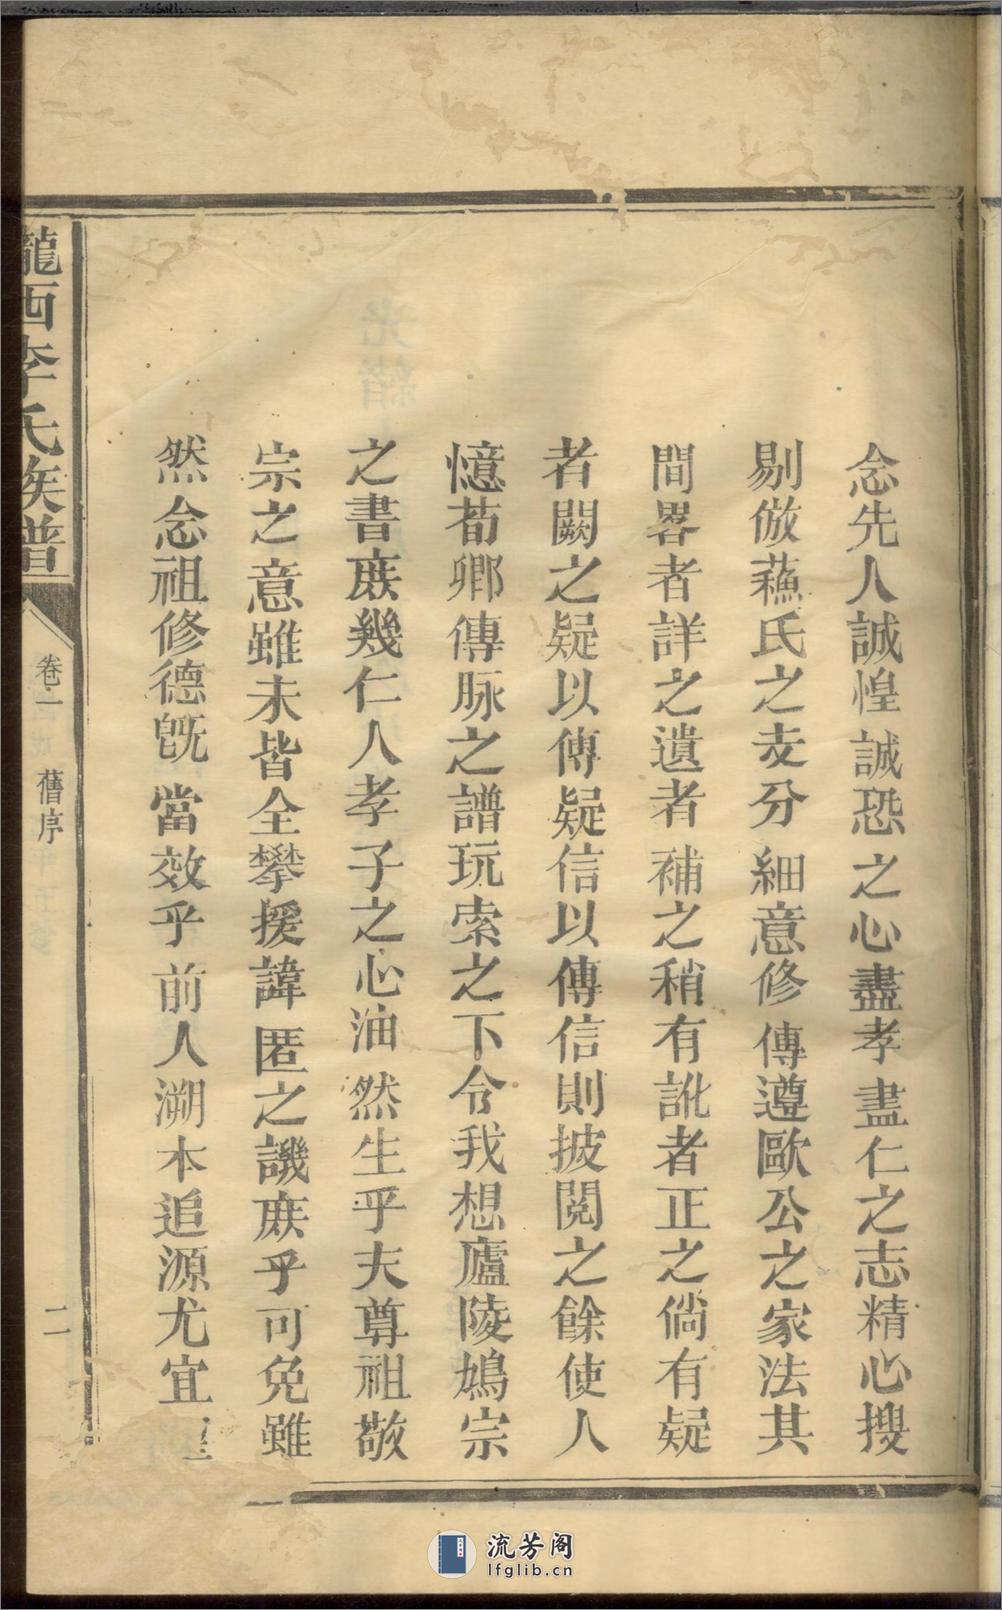 念先人誠惶誠恐之心盡孝盡仁之志精心搜
剔倣蘓氏之支分細意修傳遵歐公之家法其
間畧者詳之遺者補之稍有訛者正之倘有疑
者闕之疑以傳疑信以傳信則披閱之餘使人
憶荀卿傳脉之譜玩索之下令我想廬陵鳩宗
之書庻幾仁人孝子之心油然生乎夫尊祖敬
宗之意雖未皆全攀援諱匿之譏庻乎可免雖
然念祖修德旣當效乎前人溯本追源尤宜
隴西李氏族譜
卷一
舊序
二
流芳阁
lfglib.cn